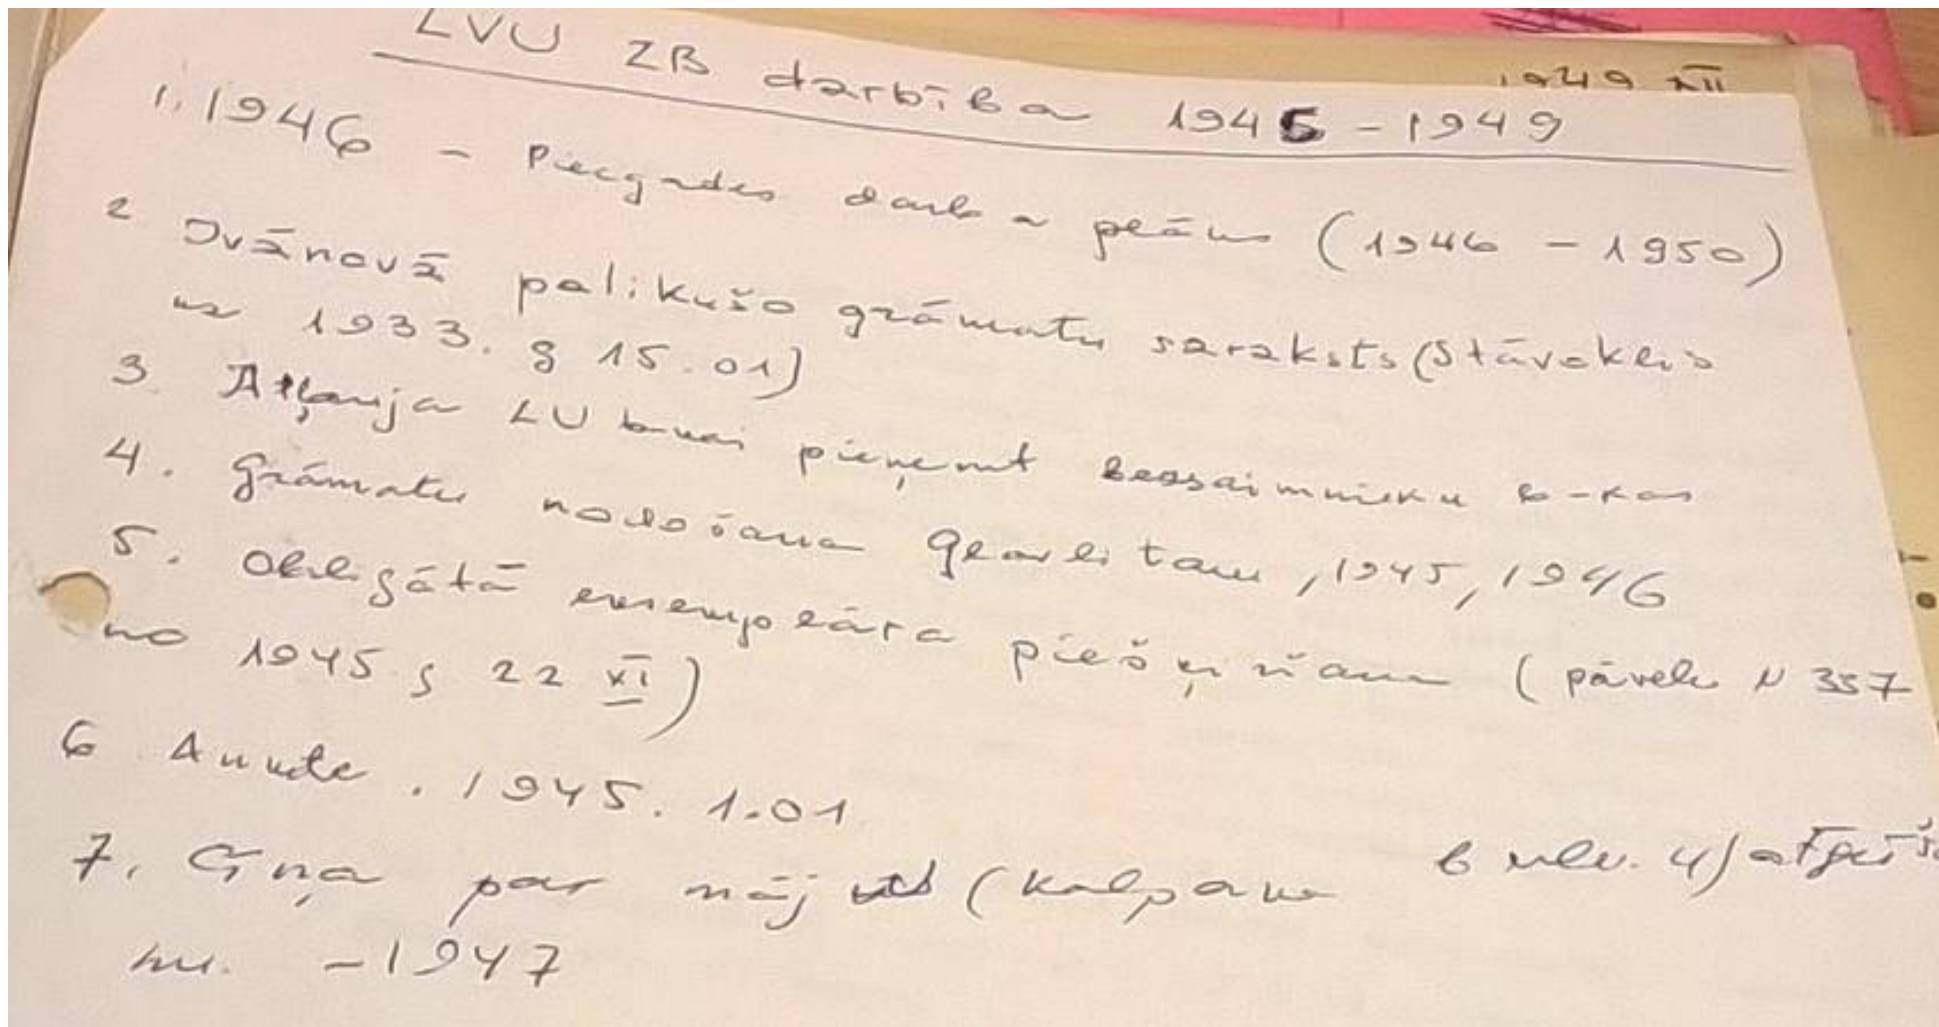 LVU ZB darbība 1945 - 1949
1949 XII
1. 1946 - Piecgades darba plāns (1946 - 1950)
2 Ivānovā palikušo grāmatu saraksts (Stāvoklis
uz 1933. g 15.01)
3. Atļauja LU b-kai pieņemt bezsaimnieku b-kas
4. Grāmatu nodošana Glavlitam, 1945, 1946
5. Obligātā eksemplāra piešķiršana (pavēle N 337
no 1945 g 22 XI)
6 . 1945. 1.01
7. Cīņa par māj (Kalpaka bulv. 4)
- 1947